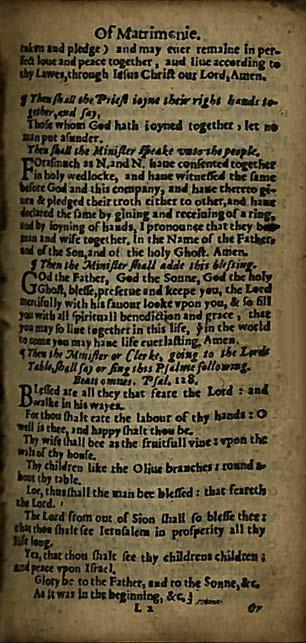 Of Matrimonie.
taken and pledge) and may euer remaine in per-
fect loue and peace together, and liue according to
thy Lawes, through Iesus Christ our Lord, Amen.
¶ Then shall the Priest ioyne their right hands to-
gether, and say,
Those whom God hath ioyned together, let no
man put asunder.
Then shall the Minister speake vnto the people.
Forasmuch as N. and N. haue consented together
in holy wedlocke, and haue witnessed the same
before God and this company, and haue thereto gi-
uen & pledged their troth either to other, and haue
declared the same by giuing and receiuing of a ring,
and by ioyning of hands, I pronounce that they be
man and wife together, In the Name of the Father,
and of the Son, and of the holy Ghost. Amen.
¶ Then the Minister shall adde this blessing.
God the Father, God the Sonne, God the holy
Ghost, blesse, preserue and keepe you, the Lord
mercifully with his fauour looke vpon you, & so fill
you with all spirituall benediction and grace, that
you may so liue together in this life, ꝭ in the world
to come you may haue life euerlasting, Amen.
¶ Then the Minister or Clerke, going to the Lords
Table, shall say or sing this Psalme following.
Beati omnes. Psal. 128.
Blessed are all they that feare the Lord: and
walke in his wayes.
For thou shalt eate the labour of thy hands: O
well is thee, and happy shalt thou be.
Thy wife shall bee as the fruitfull vine: vpon the
wals of thy house.
Thy children like the Oliue branches: round a-
bout thy table.
Loe, thus shall the man bee blessed: that feareth
the Lord.
The Lord from out of Sion shall so blesse thee:
that thou shalt see Ierusalem in prosperity all thy
life long.
Yea, that thou shalt see thy childrens children:
and peace vpon Israel.
Glory be to the Father, and to the Sonne, &c.
As it was in the beginning, &c.
L 2 Or